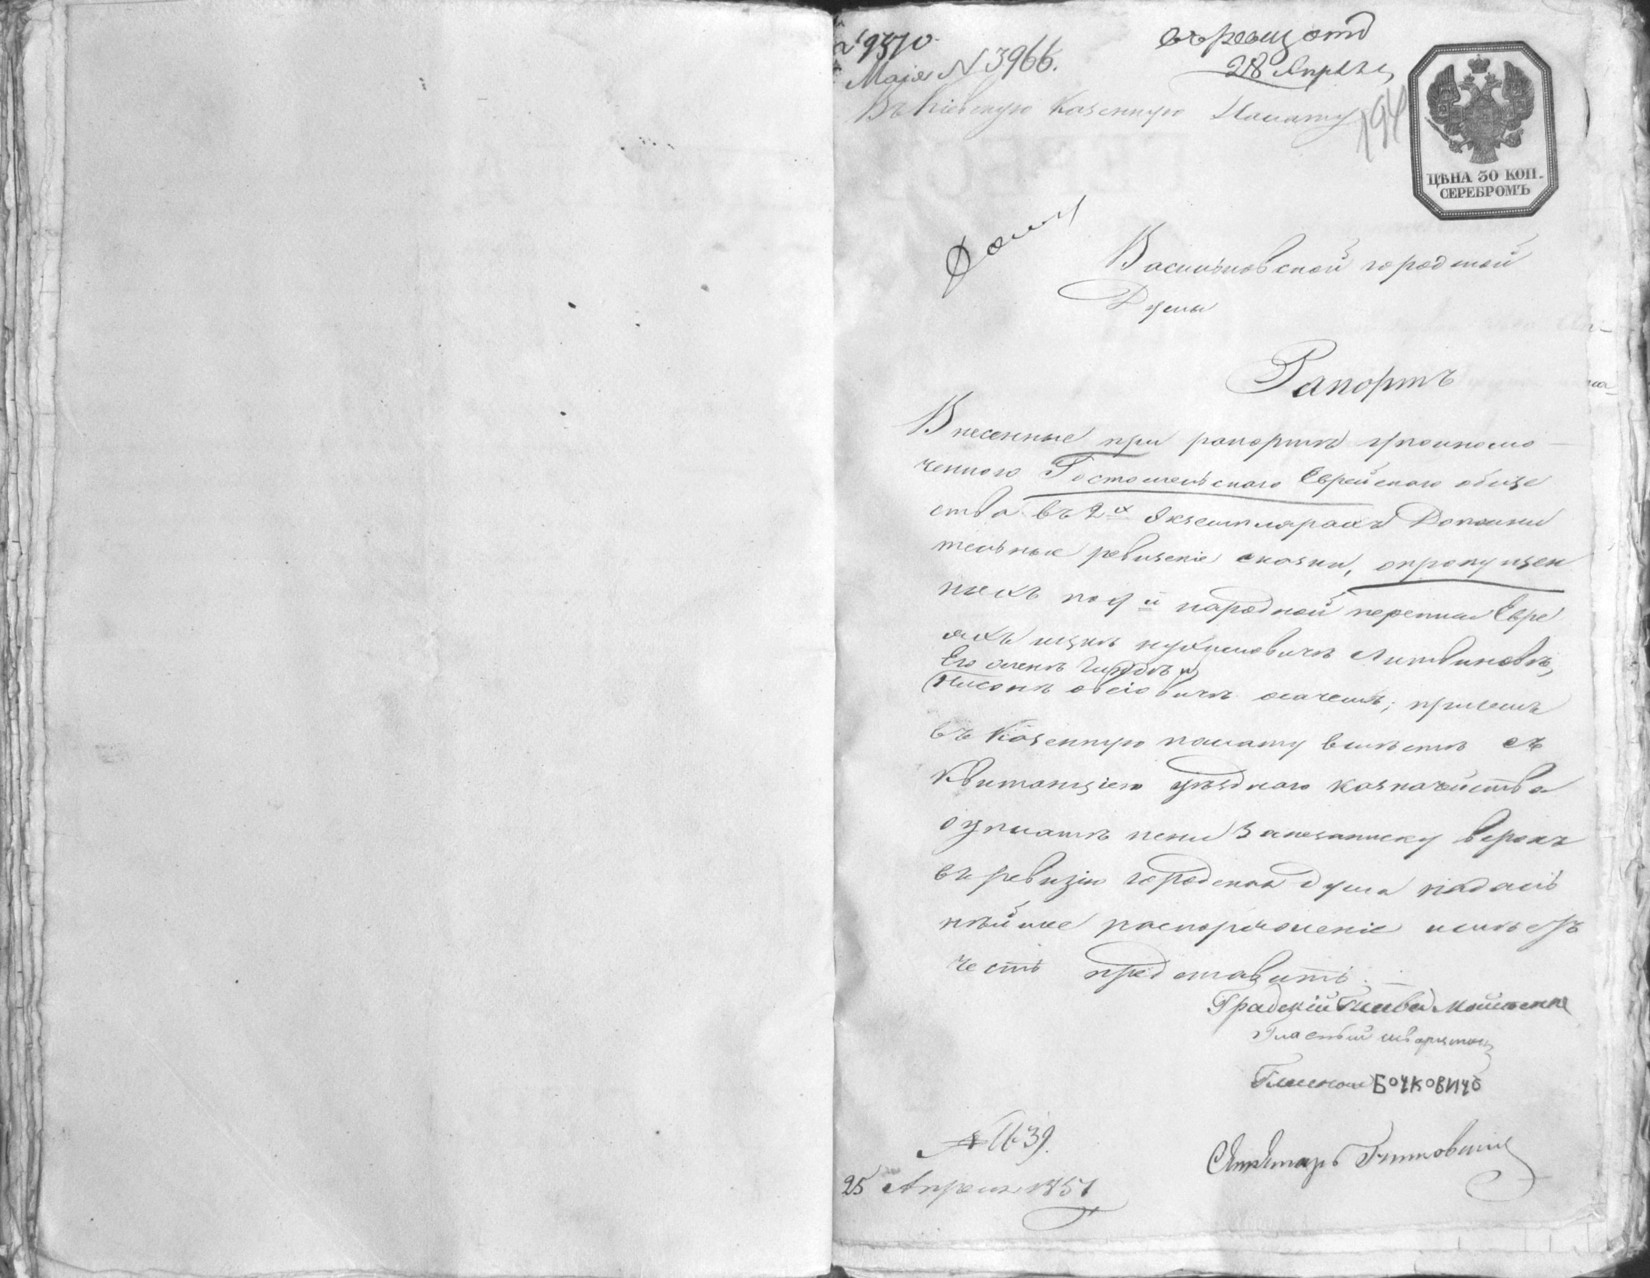 № 9370
Маія № 3966.
въ ревиз отд
28 Апреля
Въ Кіевскую Казенную Палату
194
ЦѢНА 30 КОП.
СЕРЕБРОМЪ
Васильковской городской
Думы
Рапортъ
Внесенные при рапортѣ уполномо
ченного Гостомельского Еврейского обще
ства въ 2х экземплярахъ Дополни
тельные ревизскіе сказки, о пропущен
ныхъ по 9й народной переписи Евре
яхъ Ицкѣ Нухимовичѣ Литвиновѣ,
Его сынѣ и
Овсіовичѣ причемъ
въ Казенную палату вместѣ съ
Квитанціею уѣзднаго казначейства
о уплатѣ пени За незаписку Евреевъ
въ ревизію городская дума на даль
нѣйшее распоряженіе имѣетъ
честь представить.
Градскій Глава
Гласный
Гласной БОЧКОВИЧЪ
Секретарь
№ 1139.
25 Апреля 1851